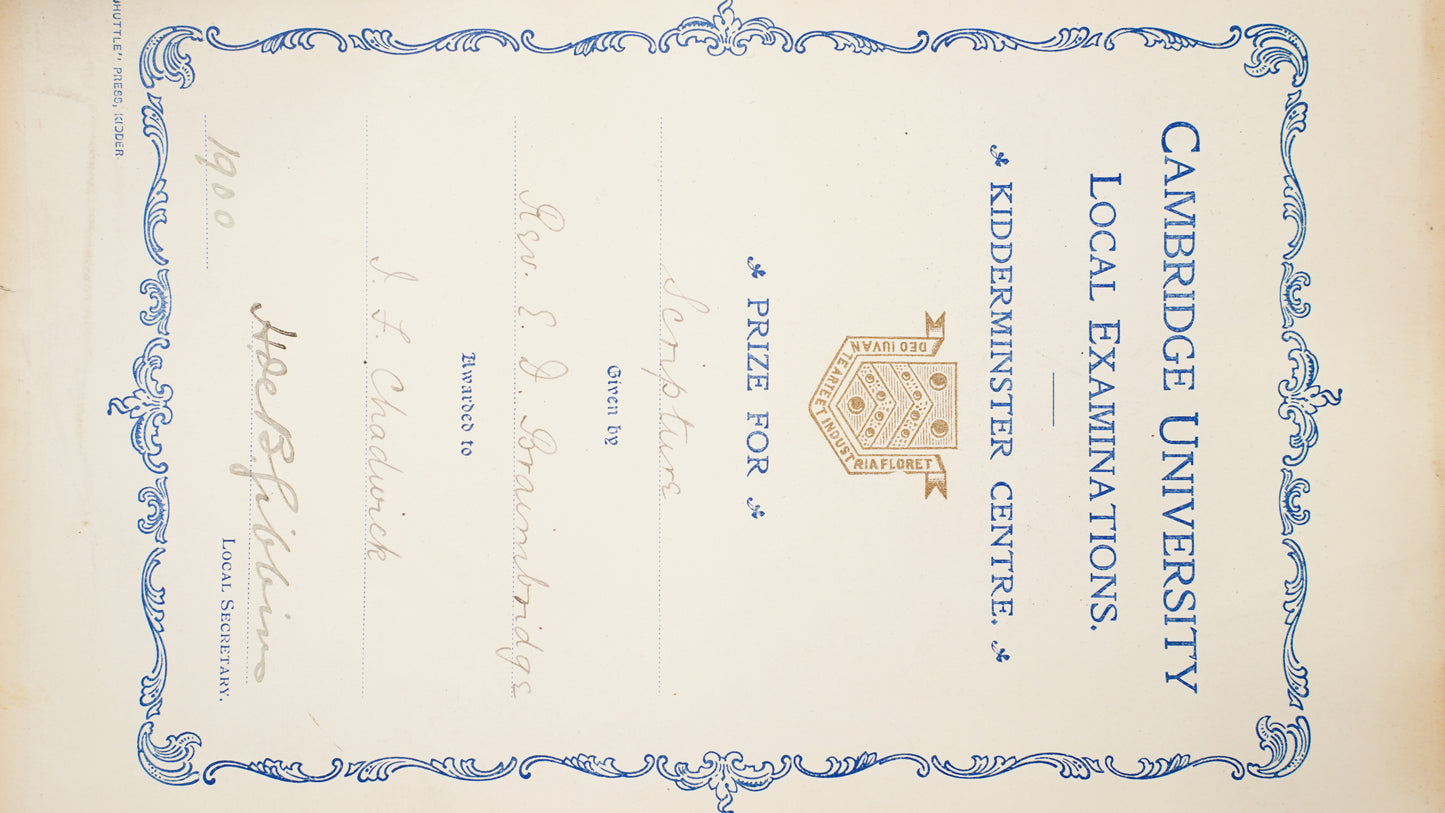 CAMBRIDGE UNIVERSITY
LOCAL EXAMINATIONS.
KIDDERMINSTER CENTRE.
DEO IUVANTE ARTE ET INDUSTRIA FLORET
PRIZE FOR
Scripture
Given by
Rev. E. D. Braimbridge
Awarded to
J. L. Chadwick
1900
H de B Gibbins
LOCAL SECRETARY.
HUTTLE" PRESS, KIDDER